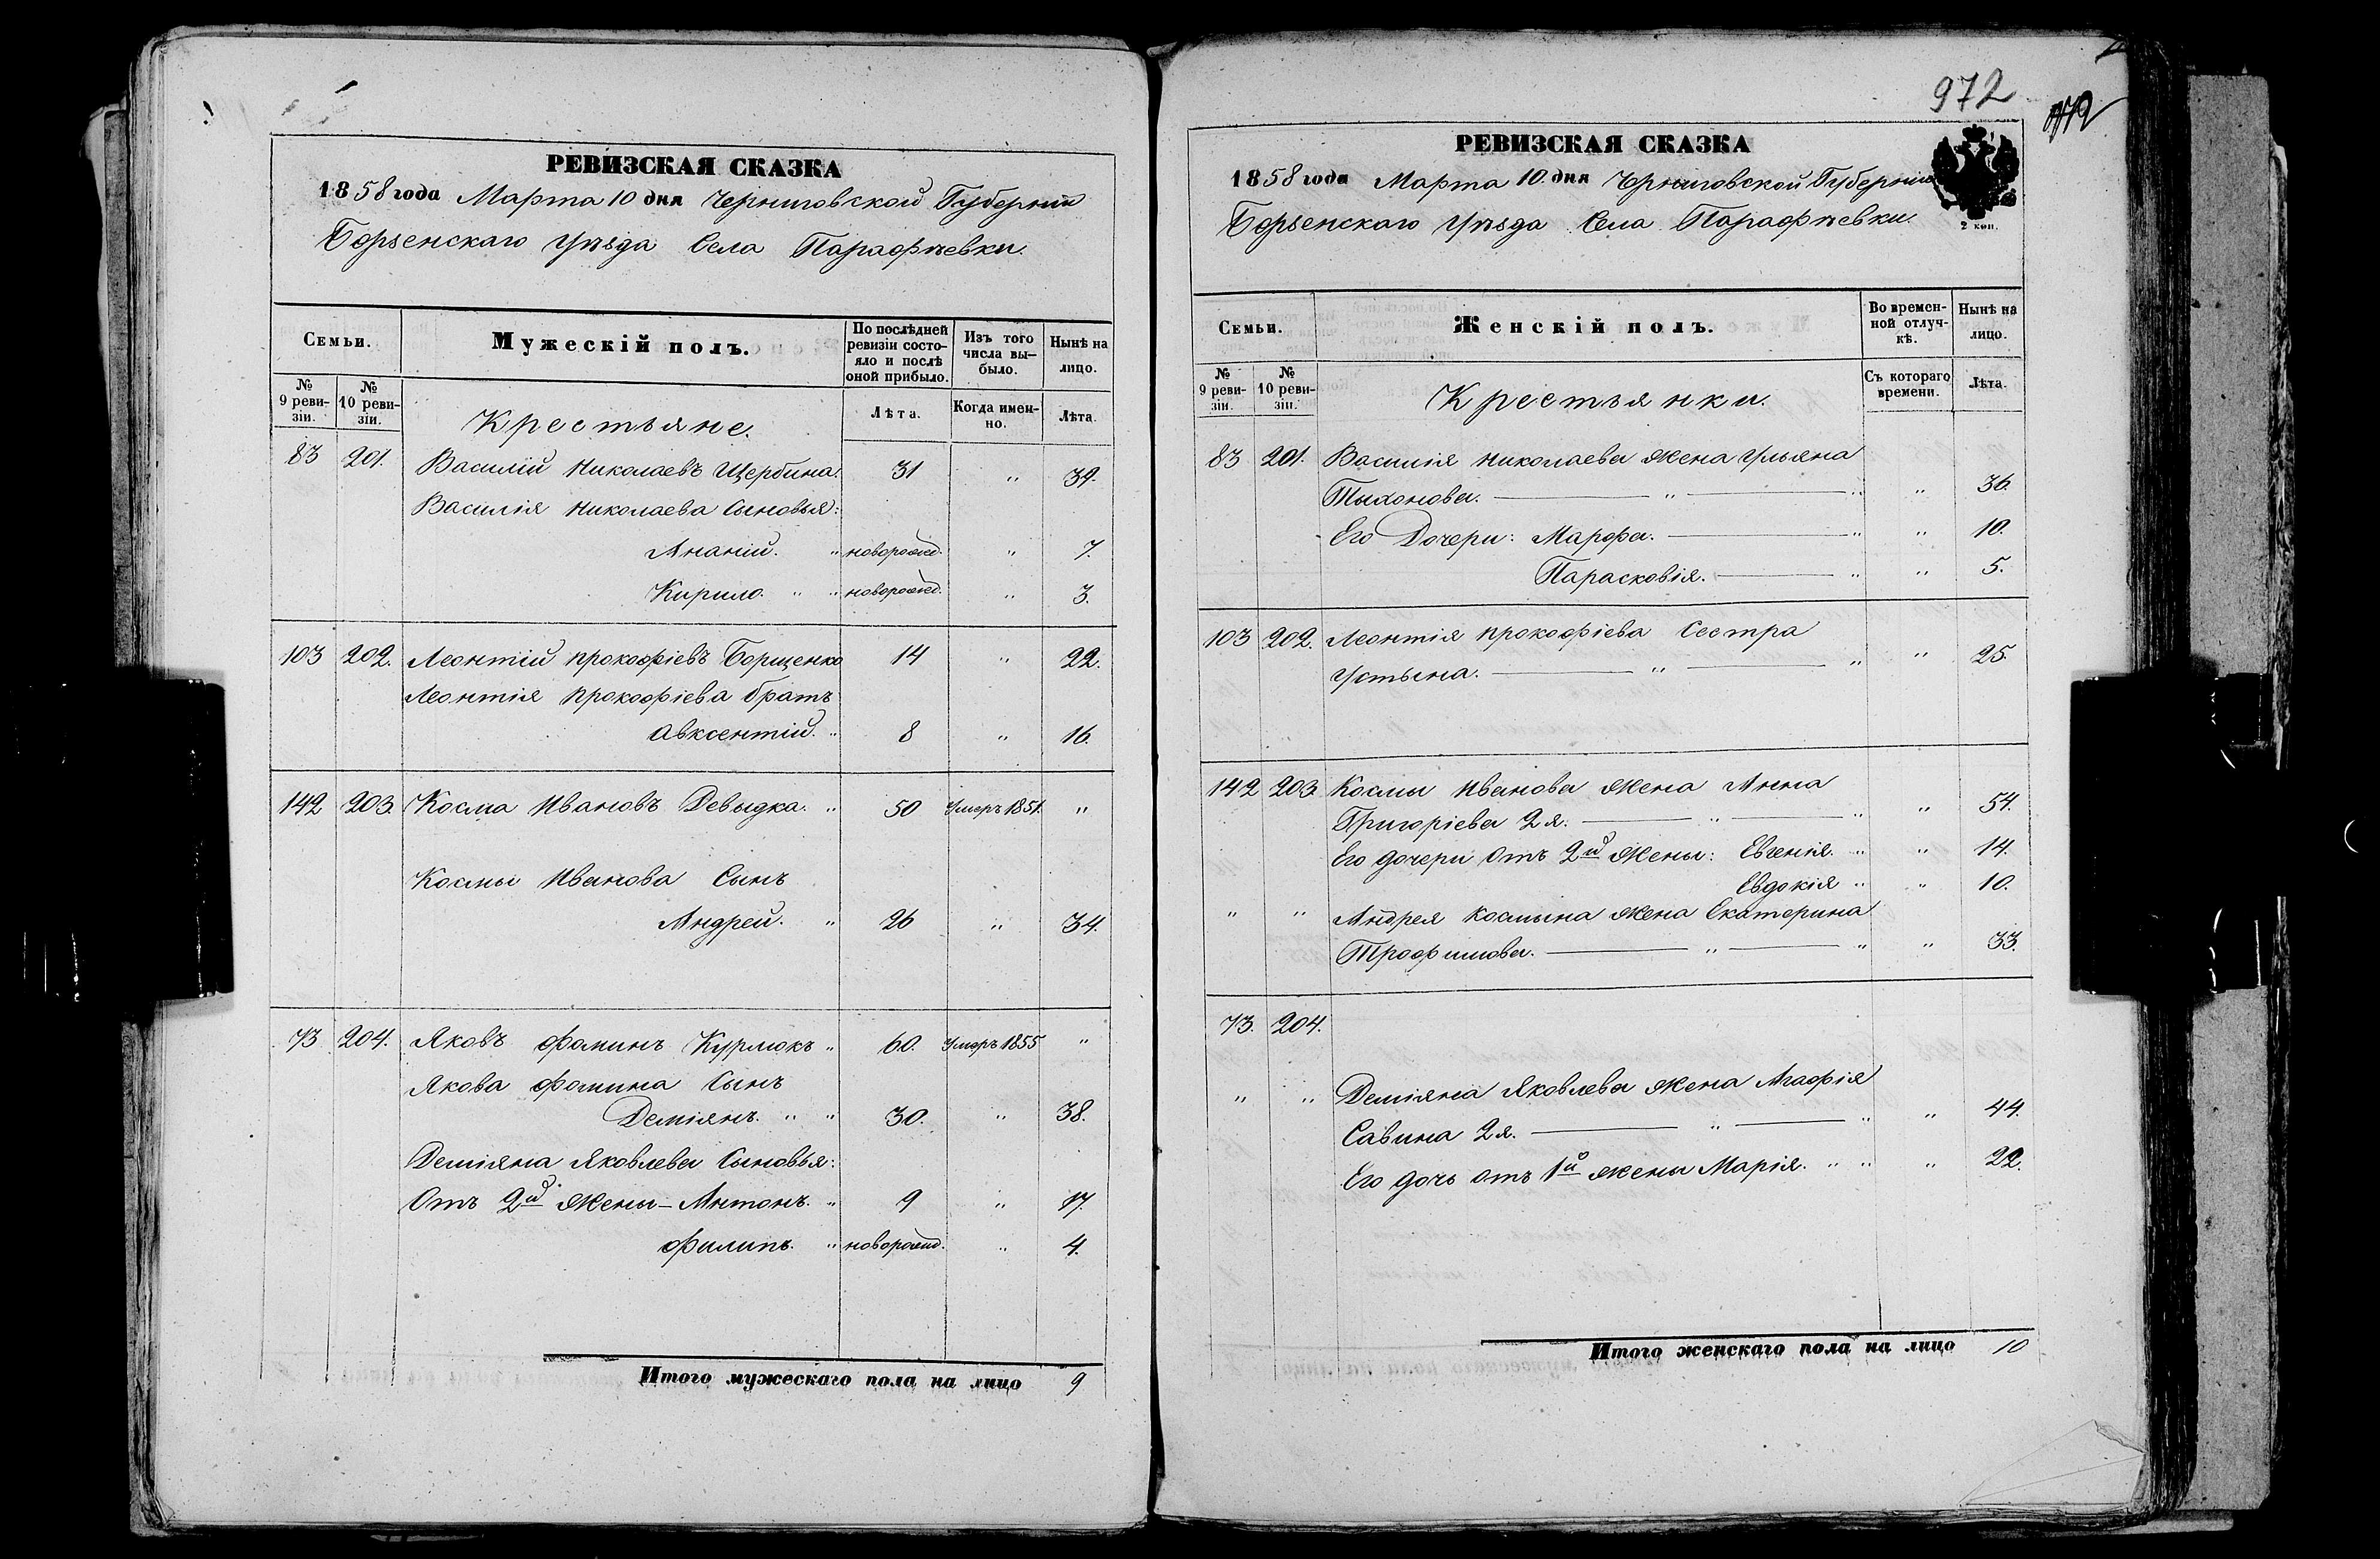 РЕВИЗСКАЯ СКАЗКА
1858 года Марта 10 дня Черниговской Губернии
Борзенскаго Уѣзда Села Парафѣевки.
Семьи.
Мужескій полъ.
По послѣдней ревизіи состояло и послѣ оной прибыло.
Изъ того числа выбыло.
Нынѣ на лицо.
№ 9 ревизіи.
№ 10 ревизіи.
Лѣта.
Когда именно.
Лѣта.
Крестьяне.
83 201. Василій Николаевъ Щербина. 31 " 39.
Василія Николаева Сыновья:
Ананій. " новорожд. " 7.
Кирило. " " новорожд. " 3.
103 202. Леонтій Прокофіевъ Борщенко 14 " 22.
Леонтія Прокофіева братъ
Авксентій. " 8 " 16.
142 203. Косма Ивановъ Девыдка. " 50 Умеръ 1851. "
Космы Иванова Сынъ
Андрей. " 26 " 34.
73 204. Яковъ Фоминъ Курмокъ " 60. Умеръ 1855 "
Якова Фомина Сынъ
Деміянъ. " " 30. " 38.
Деміяна Яковлева Сыновья:
Отъ 2й жены - Антонъ. " 9 " 17.
Филипъ. " новорожд. " 4.
Итого мужескаго пола на лицо 9
972
РЕВИЗСКАЯ СКАЗКА
1858 года Марта 10. дня Черниговской Губернии
Борзенскаго Уѣзда Села Парафѣевки.
2 коп.
Семьи.
Женскій полъ.
Во временной отлучкѣ.
Нынѣ на лицо.
№ 9 ревизіи.
№ 10 ревизіи.
Съ котораго времени.
Лѣта.
Крестьянки.
83 201. Василія Николаева жена Ульяна
Тыхонова. " " " 36.
Его Дочери: Марфа. " " 10.
Парасковія. " " 5.
103 202. Леонтія Прокофіева Сестра
Устына. " " " 25.
142 203 Космы Иванова жена Анна
Григоріева 2я. " " " 54.
Его дочери отъ 2й жены: Евгенія. " " 14.
Евдокія " " 10.
" " Андрея Космына жена Екатерина
Трофимова. " " " 33.
73. 204.
" " Деміяна Яковлева жена Агафія
Савина 2я. " " " 44.
Его дочь отъ 1й жены Марія. " " " 22.
Итого женскаго пола на лицо 10